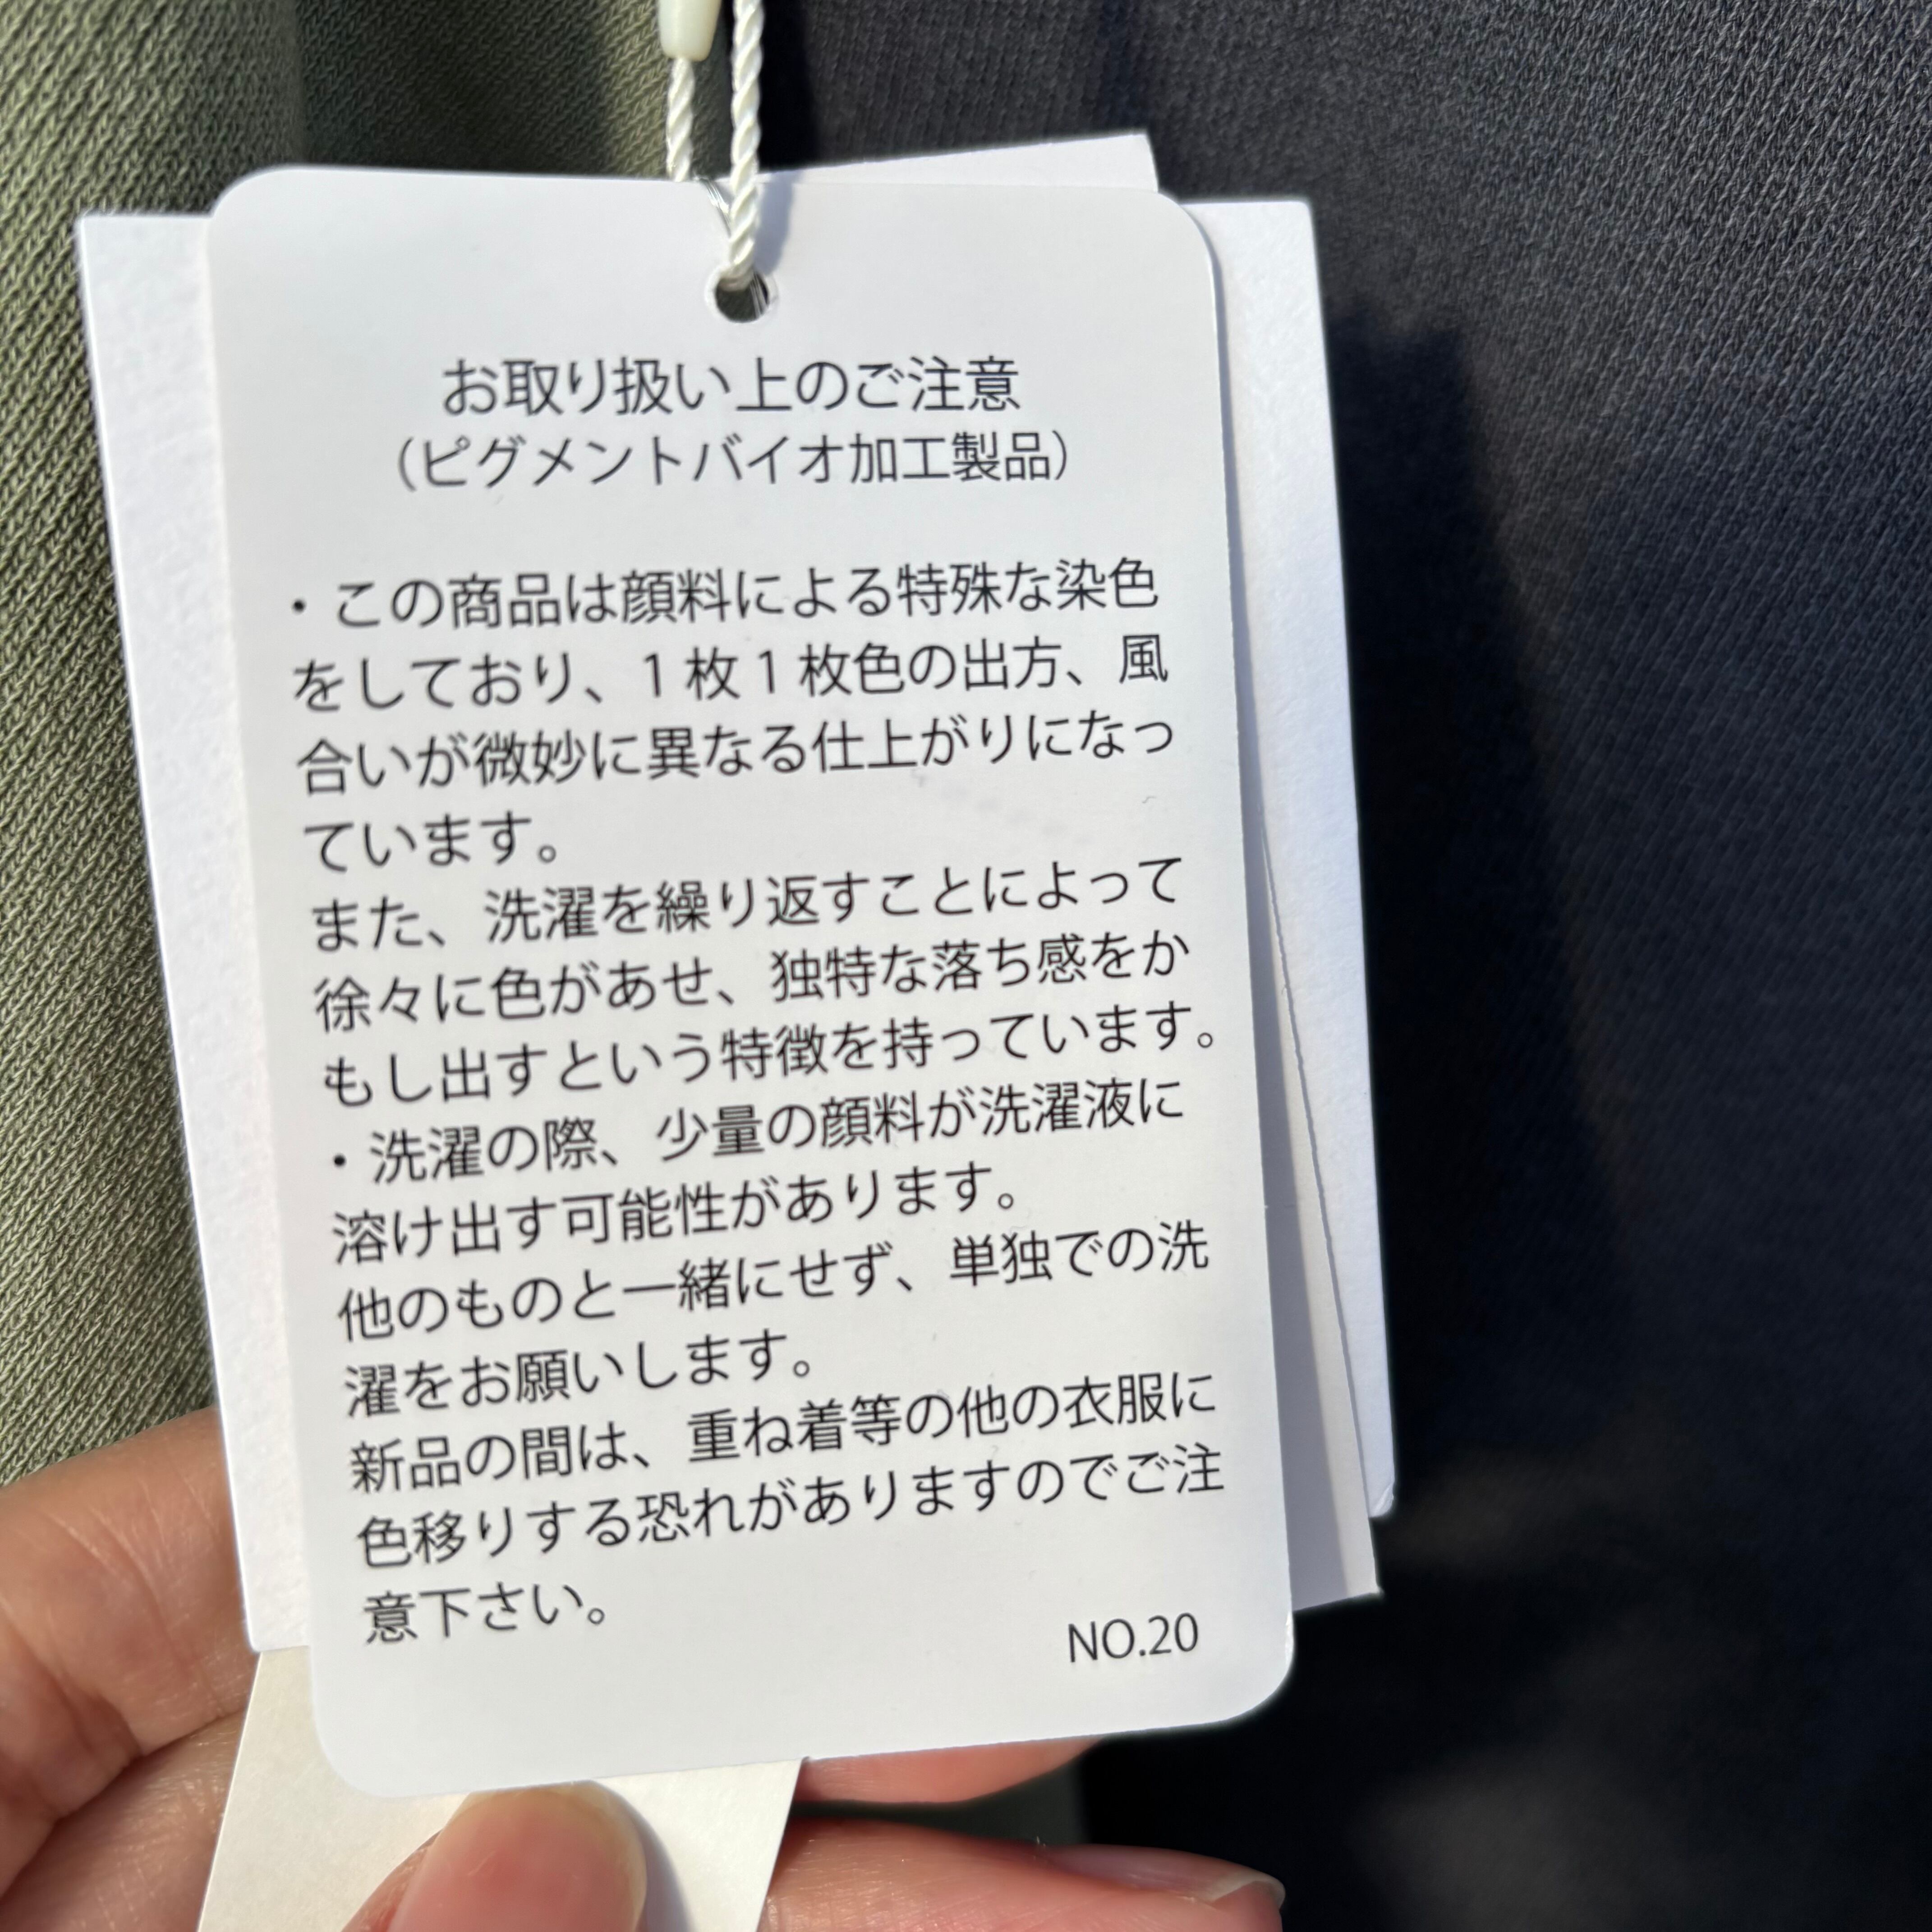 お取り扱い上のご注意
（ピグメントバイオ加工製品）
・この商品は顔料による特殊な染色
をしており、1枚1枚色の出方、風
合いが微妙に異なる仕上がりになっ
ています。
また、洗濯を繰り返すことによって
徐々に色があせ、独特な落ち感をか
もし出すという特徴を持っています。
・洗濯の際、少量の顔料が洗濯液に
溶け出す可能性があります。
他のものと一緒にせず、単独での洗
濯をお願いします。
新品の間は、重ね着等の他の衣服に
色移りする恐れがありますのでご注
意下さい。
NO.20